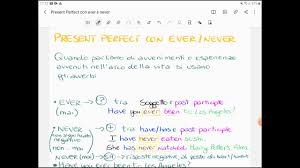 Present Perfect con ever e never
PRESENT PERFECT CON EVER/NEVER
Quando parliamo di avvenimenti o esperienze
avvenuti nell'arco della vita si usano
gli avverbi
• EVER → ? tra Soggetto e past participle
(mai) Have you ever been to Los Angeles?
• NEVER → tra have/has e past participle
negativo I have never eaten sushi
non mai She has never watched Harry Potter's films